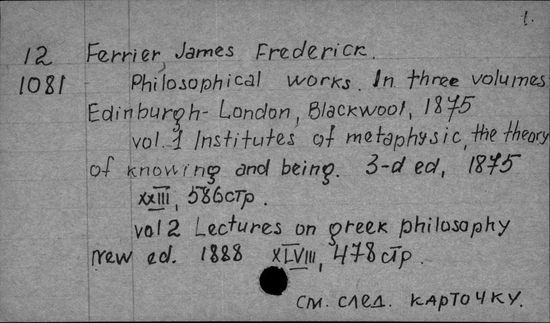 1.
12 Ferrier, James Frederick.
1081 Philosophical works. In three volumes
Edinburgh-London, Blackwool, 1875
vol. 1 Institutes of metaphysic, the theory
of knowing and being. 3-d ed, 1875
XXIII, 586 стр.
vol 2 Lectures on greek philosophy
new ed. 1888 XLVIII, 478 стр.
см. след. карточку.